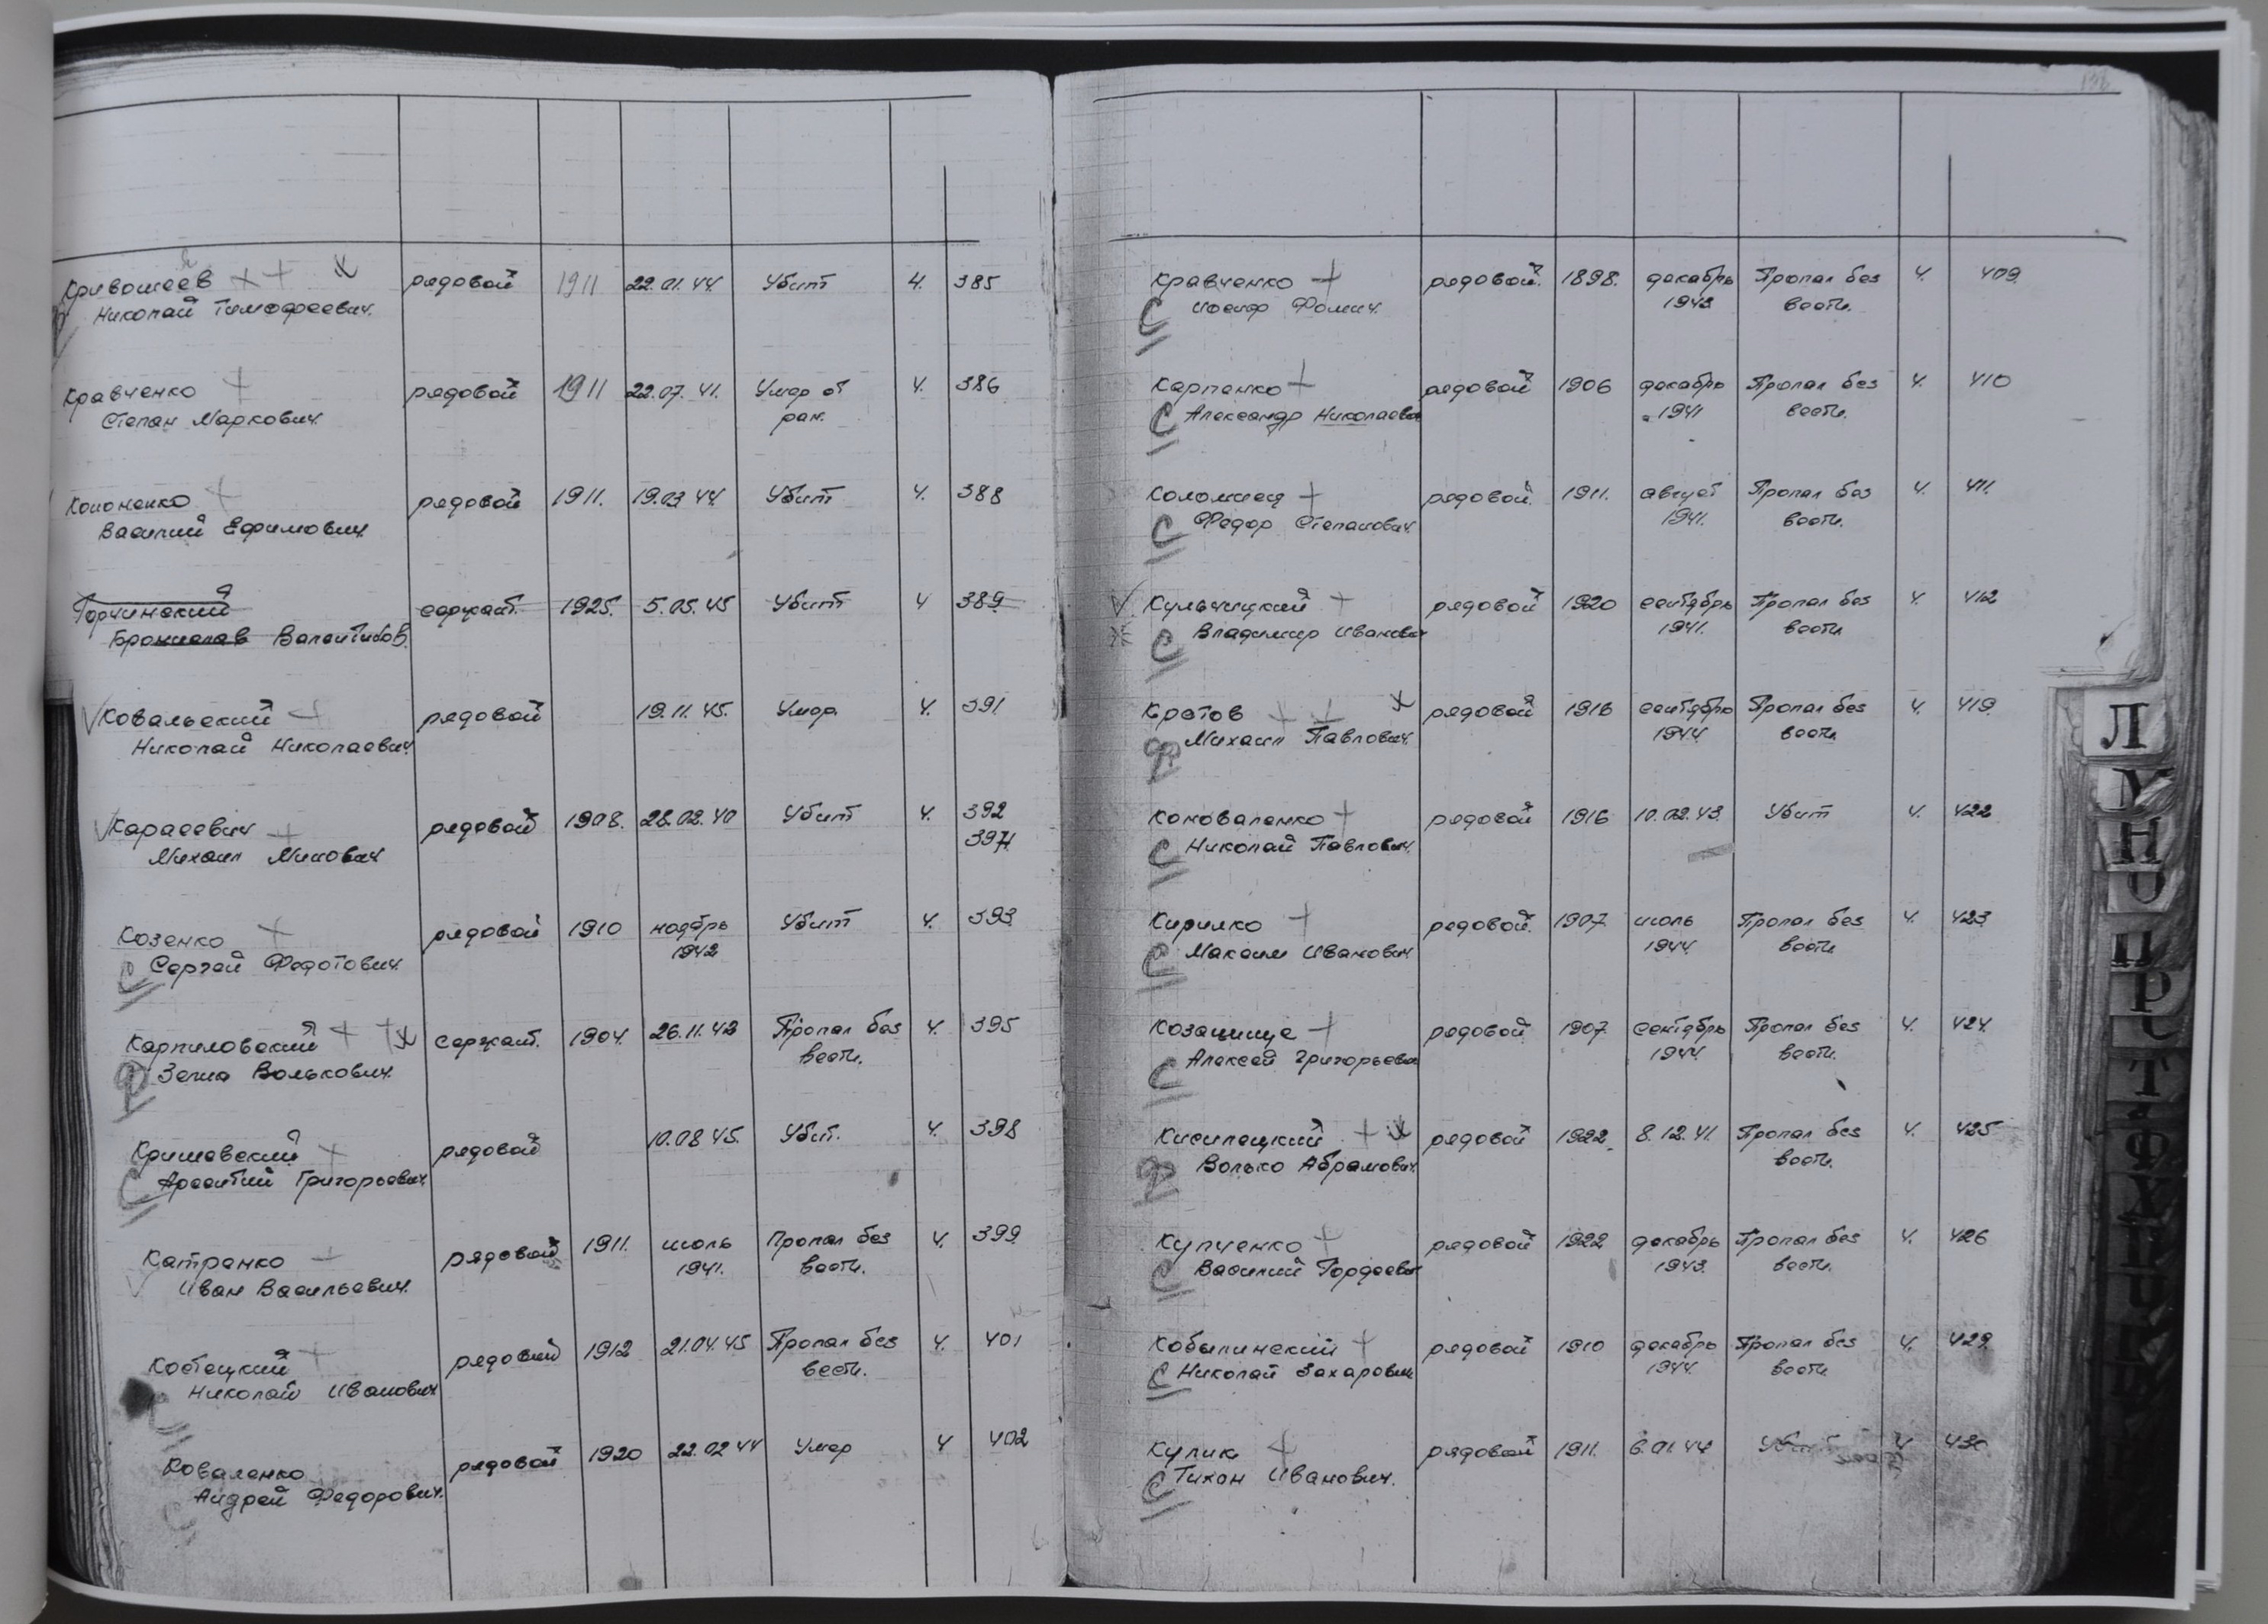 Кривошеев рядовой 1911 22.01.44. Убит 4. 385
Николай Тимофеевич.
Кравченко рядовой 1911 22.07.41. Умер от 4. 386
Степан Маркович. ран.
Кононенко рядовой 1911. 19.03.44. Убит 4. 388
Василий Ефимович.
Горчинский сержант. 1925. 5.05.45 Убит 4 389
Бронислав Валентинов.
Ковальский рядовой 19.11.45. Умер 4. 391
Николай Николаевич
Карасевич рядовой 1908. 28.02.40 Убит 4. 392
Михаил 397
Козенко рядовой 1910 ноябрь Убит 4. 393
С Сергей Федотович. 1942
Карпиловский сержант. 1904. Пропал без 4. 395
Ф Зелма Волькович. вести.
Кришевский рядовой 10.08.45. Убит. 4. 398
С Арсентий Григорьевич.
Катренко рядовой 1911. июль Пропал без 4. 399
Иван Васильевич. 1941. вести.
Костецкий рядовой 1912 21.04.45 Пропал без 4. 401
Николай Иванович вести.
С
Коваленко рядовой 1920 22.02.44 Умер 4 402
Андрей Федорович.
С
Кравченко рядовой. 1898. декабрь Пропал без 4. 409
С Иосиф Фомич. 1943 вести.
Карпенко рядовой 1906 декабрь Пропал без 4. 410
С Александр Николаевич 1941 вести.
Коломиец рядовой. 1911. август Пропал без 4. 411.
С Федор Степанович. 1941. вести.
Кульчицкий рядовой 1920 сентябрь Пропал без 4. 412
С Владимир Иванович 1941. вести
Кротов рядовой 1916 сентябрь Пропал без 4. 419
Ф Михаил Павлович. 1944. вести
Коноваленко рядовой 1916 10.02.43. Убит 4. 422
С Николай Павлович.
Кирилко рядовой. 1907 июль Пропал без 4. 423
С Максим Иванович 1944. вести
Козацище рядовой 1907 сентябрь Пропал без 4. 424
С Алексей Григорьевич 1944 вести.
Кисилецкий рядовой 1922 8.12.41. Пропал без 4. 425
Ф Волько Абрамович вести.
Купченко рядовой 1922 декабрь Пропал без 4. 426
С Василий Гордеевич 1943. вести.
Кобылинский рядовой 1910 декабрь Пропал без 4. 429.
С Николай Захарович 1944. вести.
Кулик рядовой 1911. 6.01.44 4 430
С Тихон Иванович.
Л
М
Н
О
П
Р
С
Т